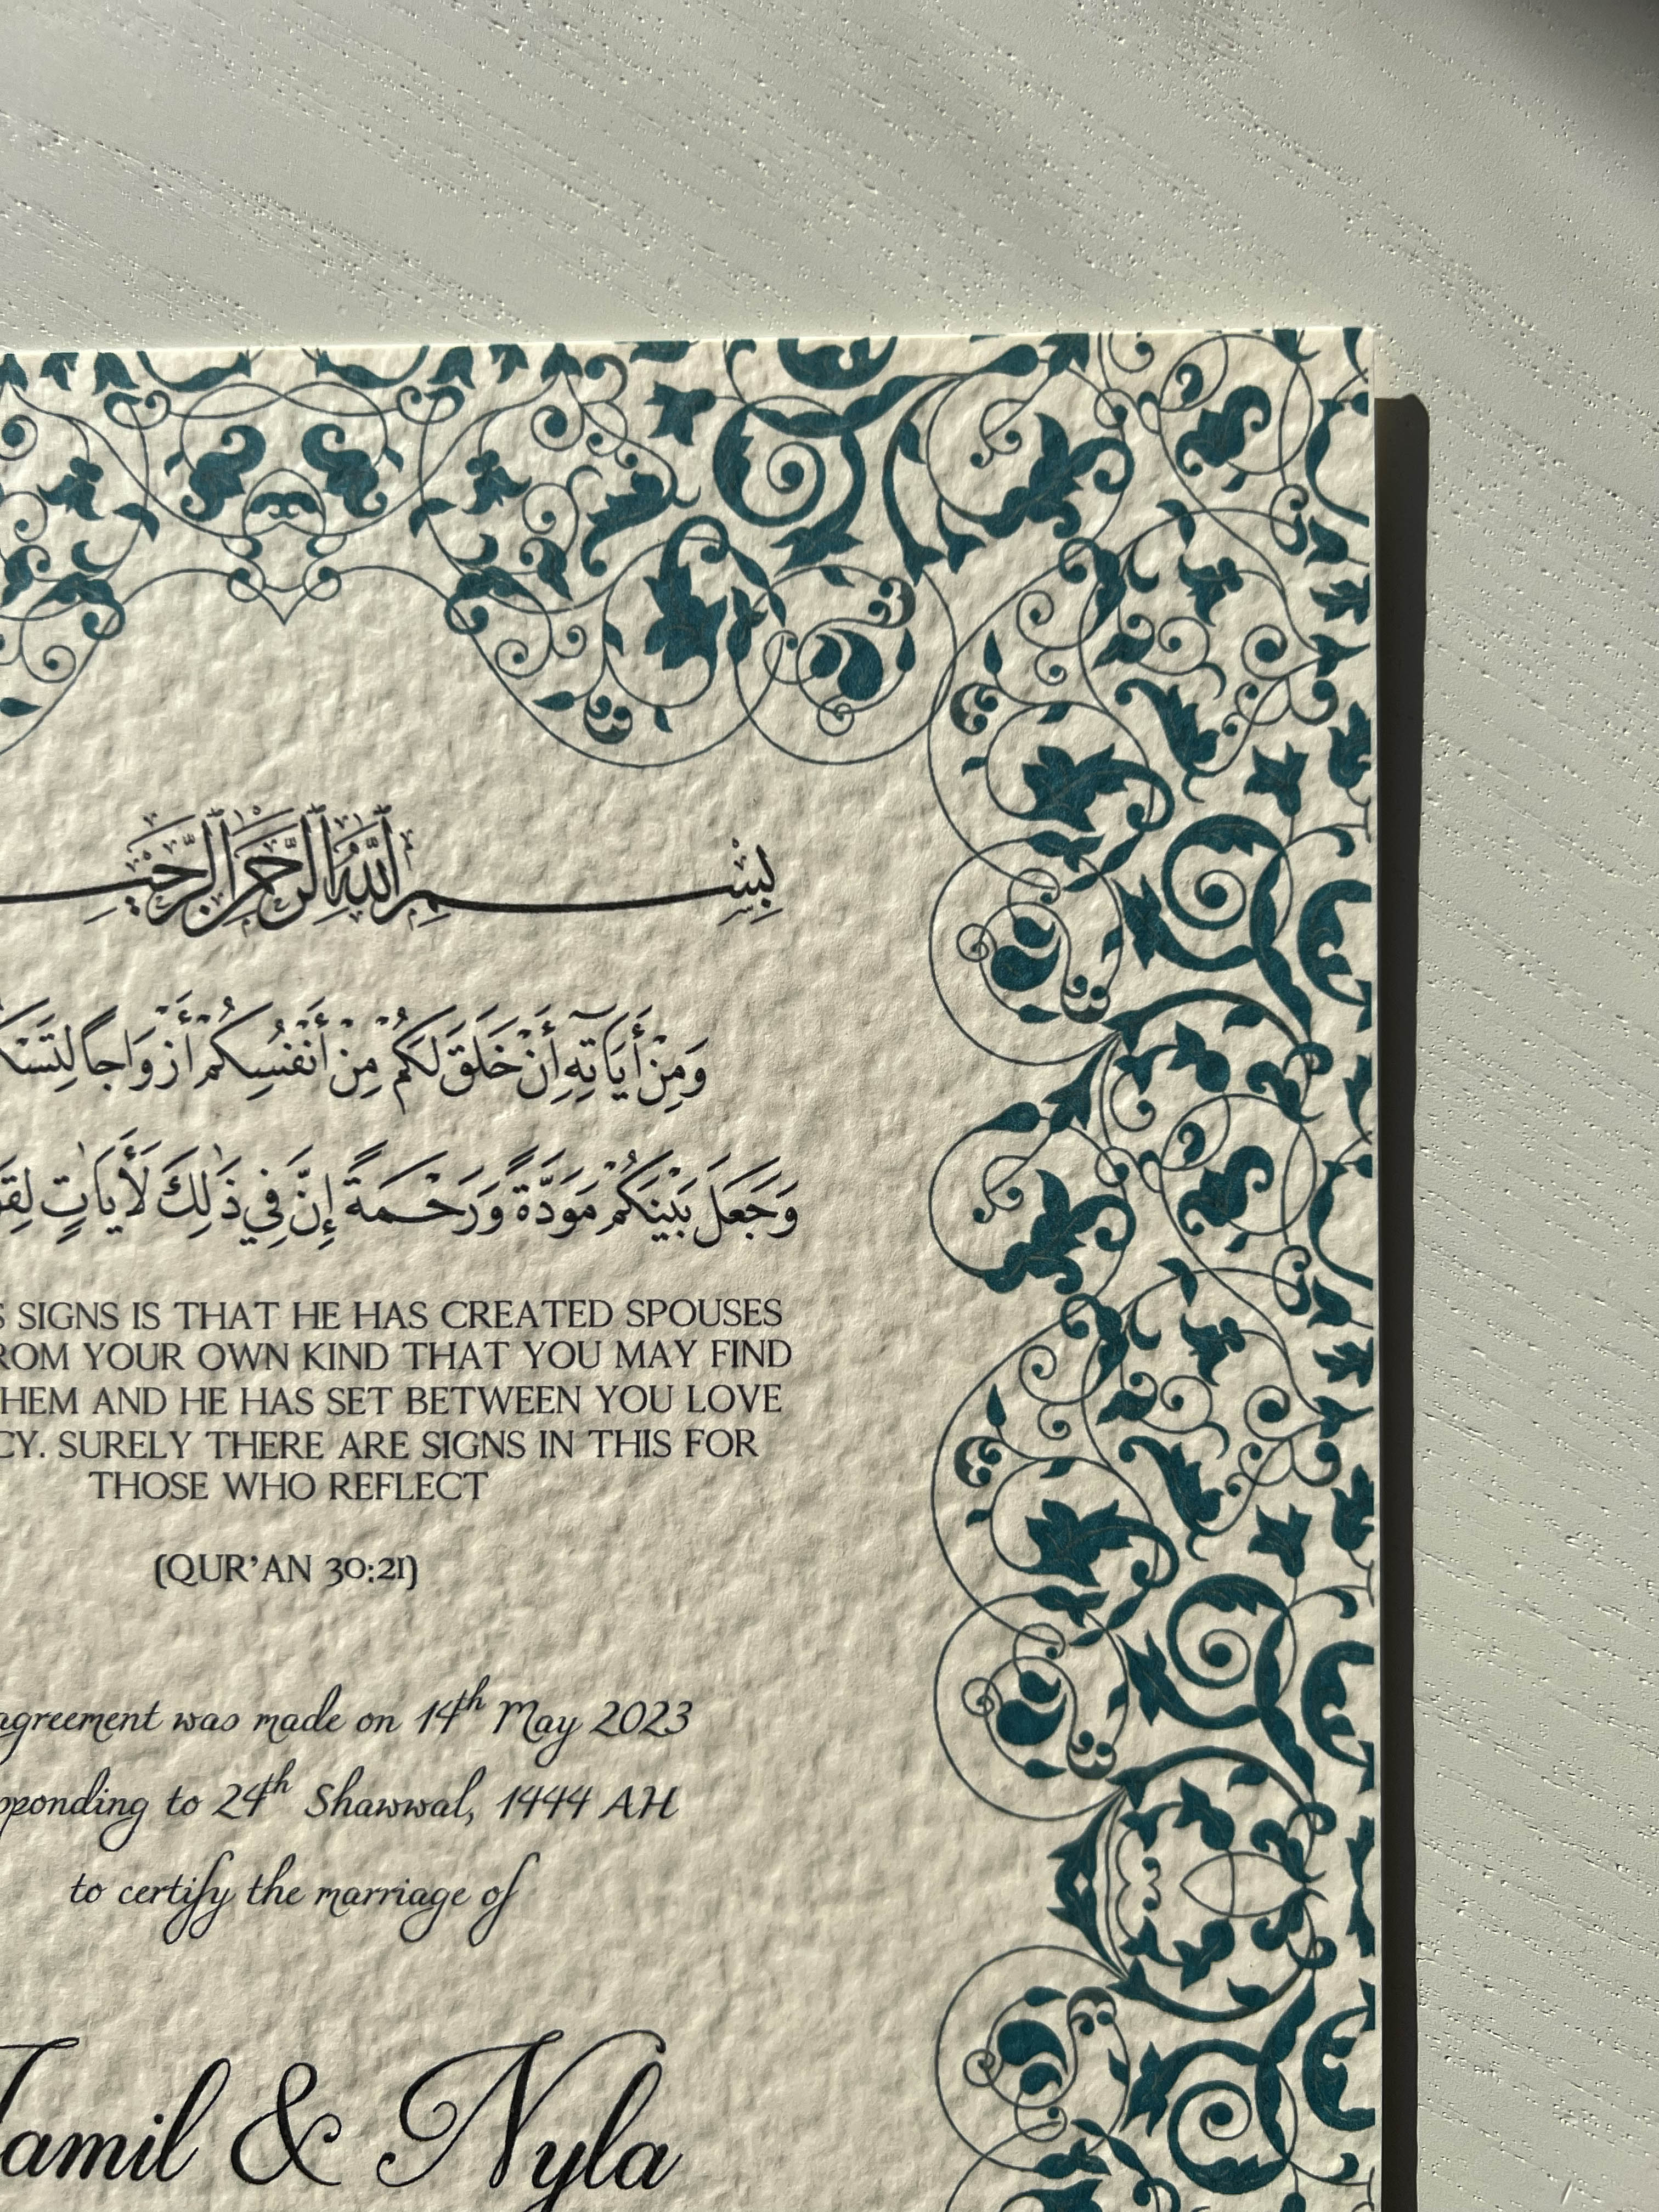 بِسْمِ ٱللَّهِ ٱلرَّحْمَٰنِ ٱلرَّحِيْـ
وَمِنْ أَيَاتِهِ أَنْ خَلَقَ لَكُمْ مِنْ أَنْفُسِكُمْ أَزْوَاجاً
وَجَعَلَ بَيْنَكُمْ مَوَدَّةً وَرَحْمَةً إِنَّ فِي ذَٰلِكَ لَأَيَاتٍ
SIGNS IS THAT HE HAS CREATED SPOUSES
YOUR OWN KIND THAT YOU MAY FIND
AND HE HAS SET BETWEEN YOU LOVE
SURELY THERE ARE SIGNS IN THIS FOR
THOSE WHO REFLECT
(QUR'AN 30:21)
agreement was made on 14th May 2023
to 24th Shawwal, 1444 AH
to certify the marriage of
& Nyla